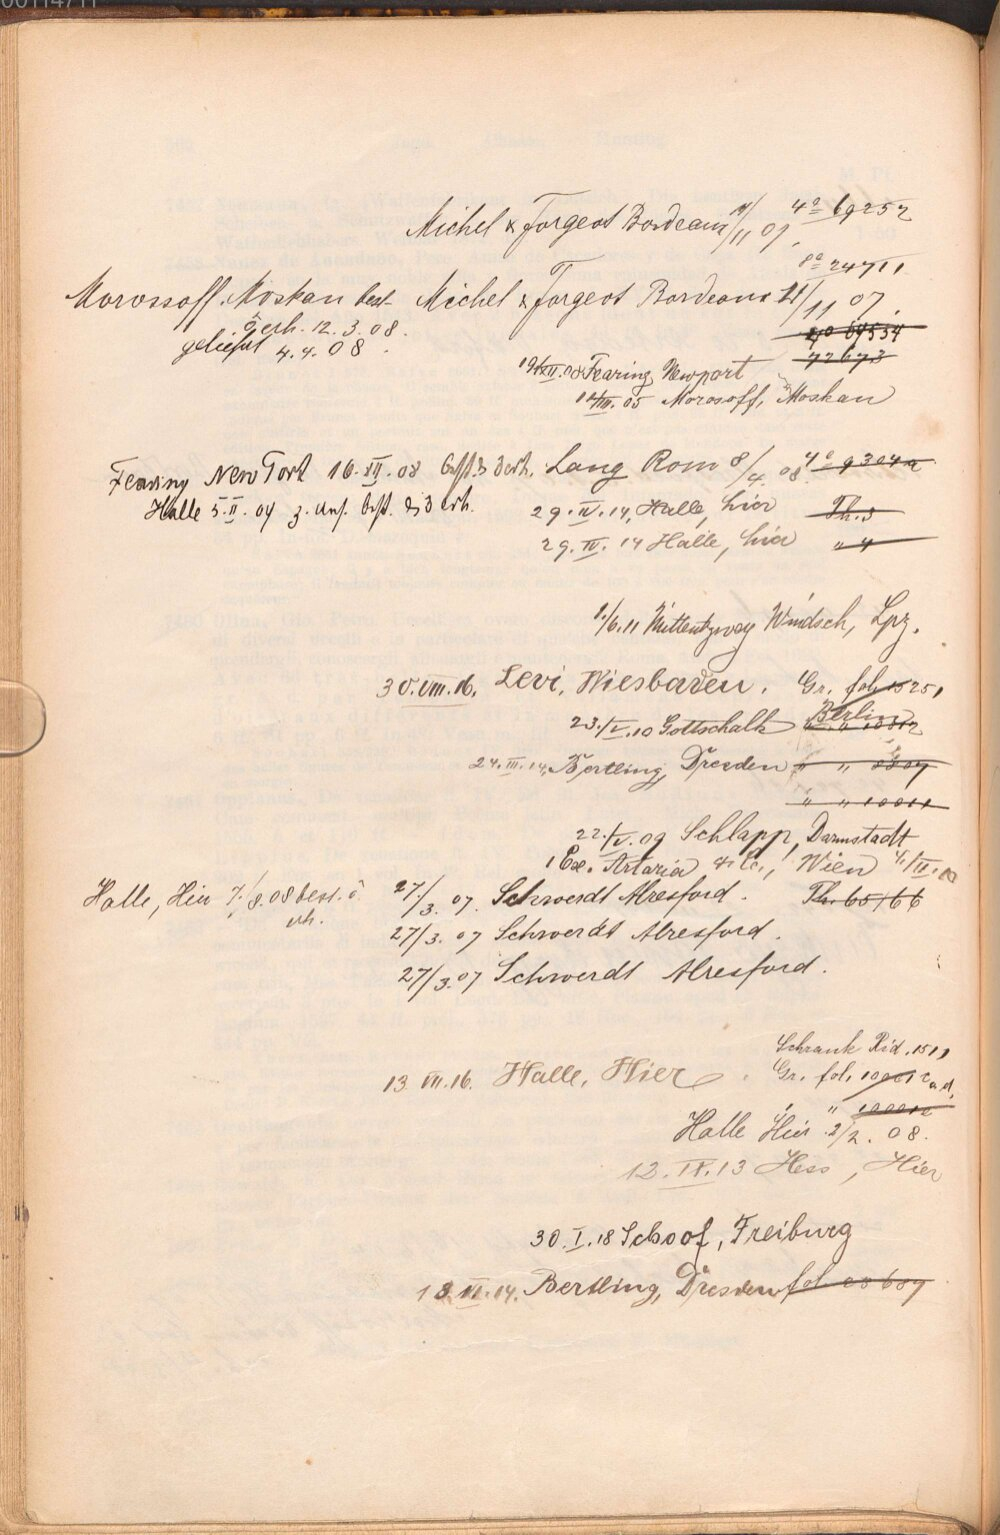 Michel & Forgeot Bordeaux 11/11 07. 4° 69252
8° 24711
Morossoff Moskau best. Michel & Forgeot Bordeaux 11/11 07.
ö erh. 12. 3. 08.
geliefert 4. 4. 08.
40 69534
72673
19/XII.08 Fearing, Newport
Morosoff, Moskau
Fearing New York 16. XII. 08 Lang Rom 8/4. 08. 4° 9304a
Halle 5. II. 09 z. Ans. erh. 29. IV. 14, Halle, hier Th. 3
29. IV. 14 Halle, hier " 4
1./6.11 Windsch, Lpz.
30. VIII. 16. Levi, Wiesbaden. Gr. fol. 15251
23./V. 10 Gottschalk Berlin
24. III. 14, Bertling, Dresden " "
" " 10011
22./V. 09 Schlapp, Darmstadt
1 Ex. Artaria & Co., Wien
Halle, Hier 7./8. 08 best. ö 27/3. 07. Schwerdt Alresford. Th. 65/66
erh.
27/3. 07 Schwerdt Alresford.
27/3. 07 Schwerdt Alresford.
Schrank Rid. 1511
13 VII. 16. Halle, Hier. Gr. fol.
Halle Hier 2/2. 08.
12. IX. 13 Hess, Hier
30. I. 18 Schoof, Freiburg
Bertling, Dresden fol